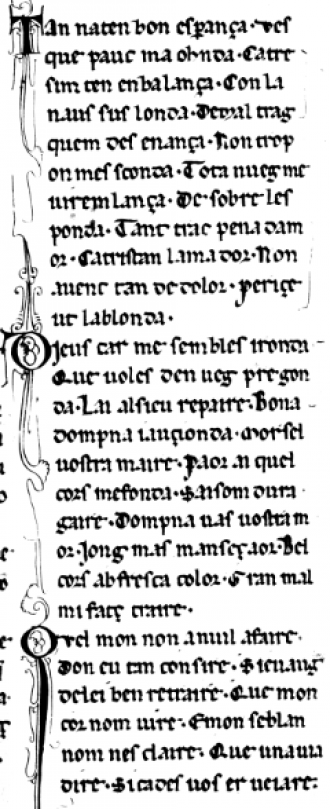 Tan naten bon esperança. Ves
que pauc ma onda. Catre
sim ten enbalança. Con la
naus sus londa. Detral trag
quem des enança. Non trop
on mes sconda. Tota nueg me
uirem lança. De sobre les
ponda. Tant trac pena dam
or. Catristan lamador. Non
auenc tan de dolor. per içe
ut la blonda.
Dieus car me sembles ironda
Que uoles den ueg pregon
da. Lai alsieu repaire. Bona
dompna iauçionda. Morsel
uostra maire. Paor ai quel
cors mefonda. Saisom dura
gaire. Dompna uas uostram
or. Iong mas mans et aor. Bel
cors ab fresca color. Gran mal
mi façç traire.
Qvel mon non a nuil afaire.
Don eu tan consire. Sieu aug
delei ben retraire. Que mon
cor nom uire. E mon seblan
nom nes claire. Que unauia
dire. Sicades uos er ueiaire.